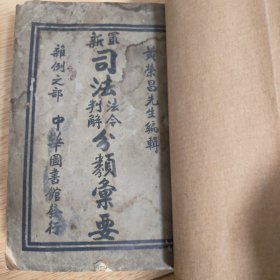 黃榮昌先生編輯
最新
司法法令判解分類彙要
雜例之部
中華圖書館發行